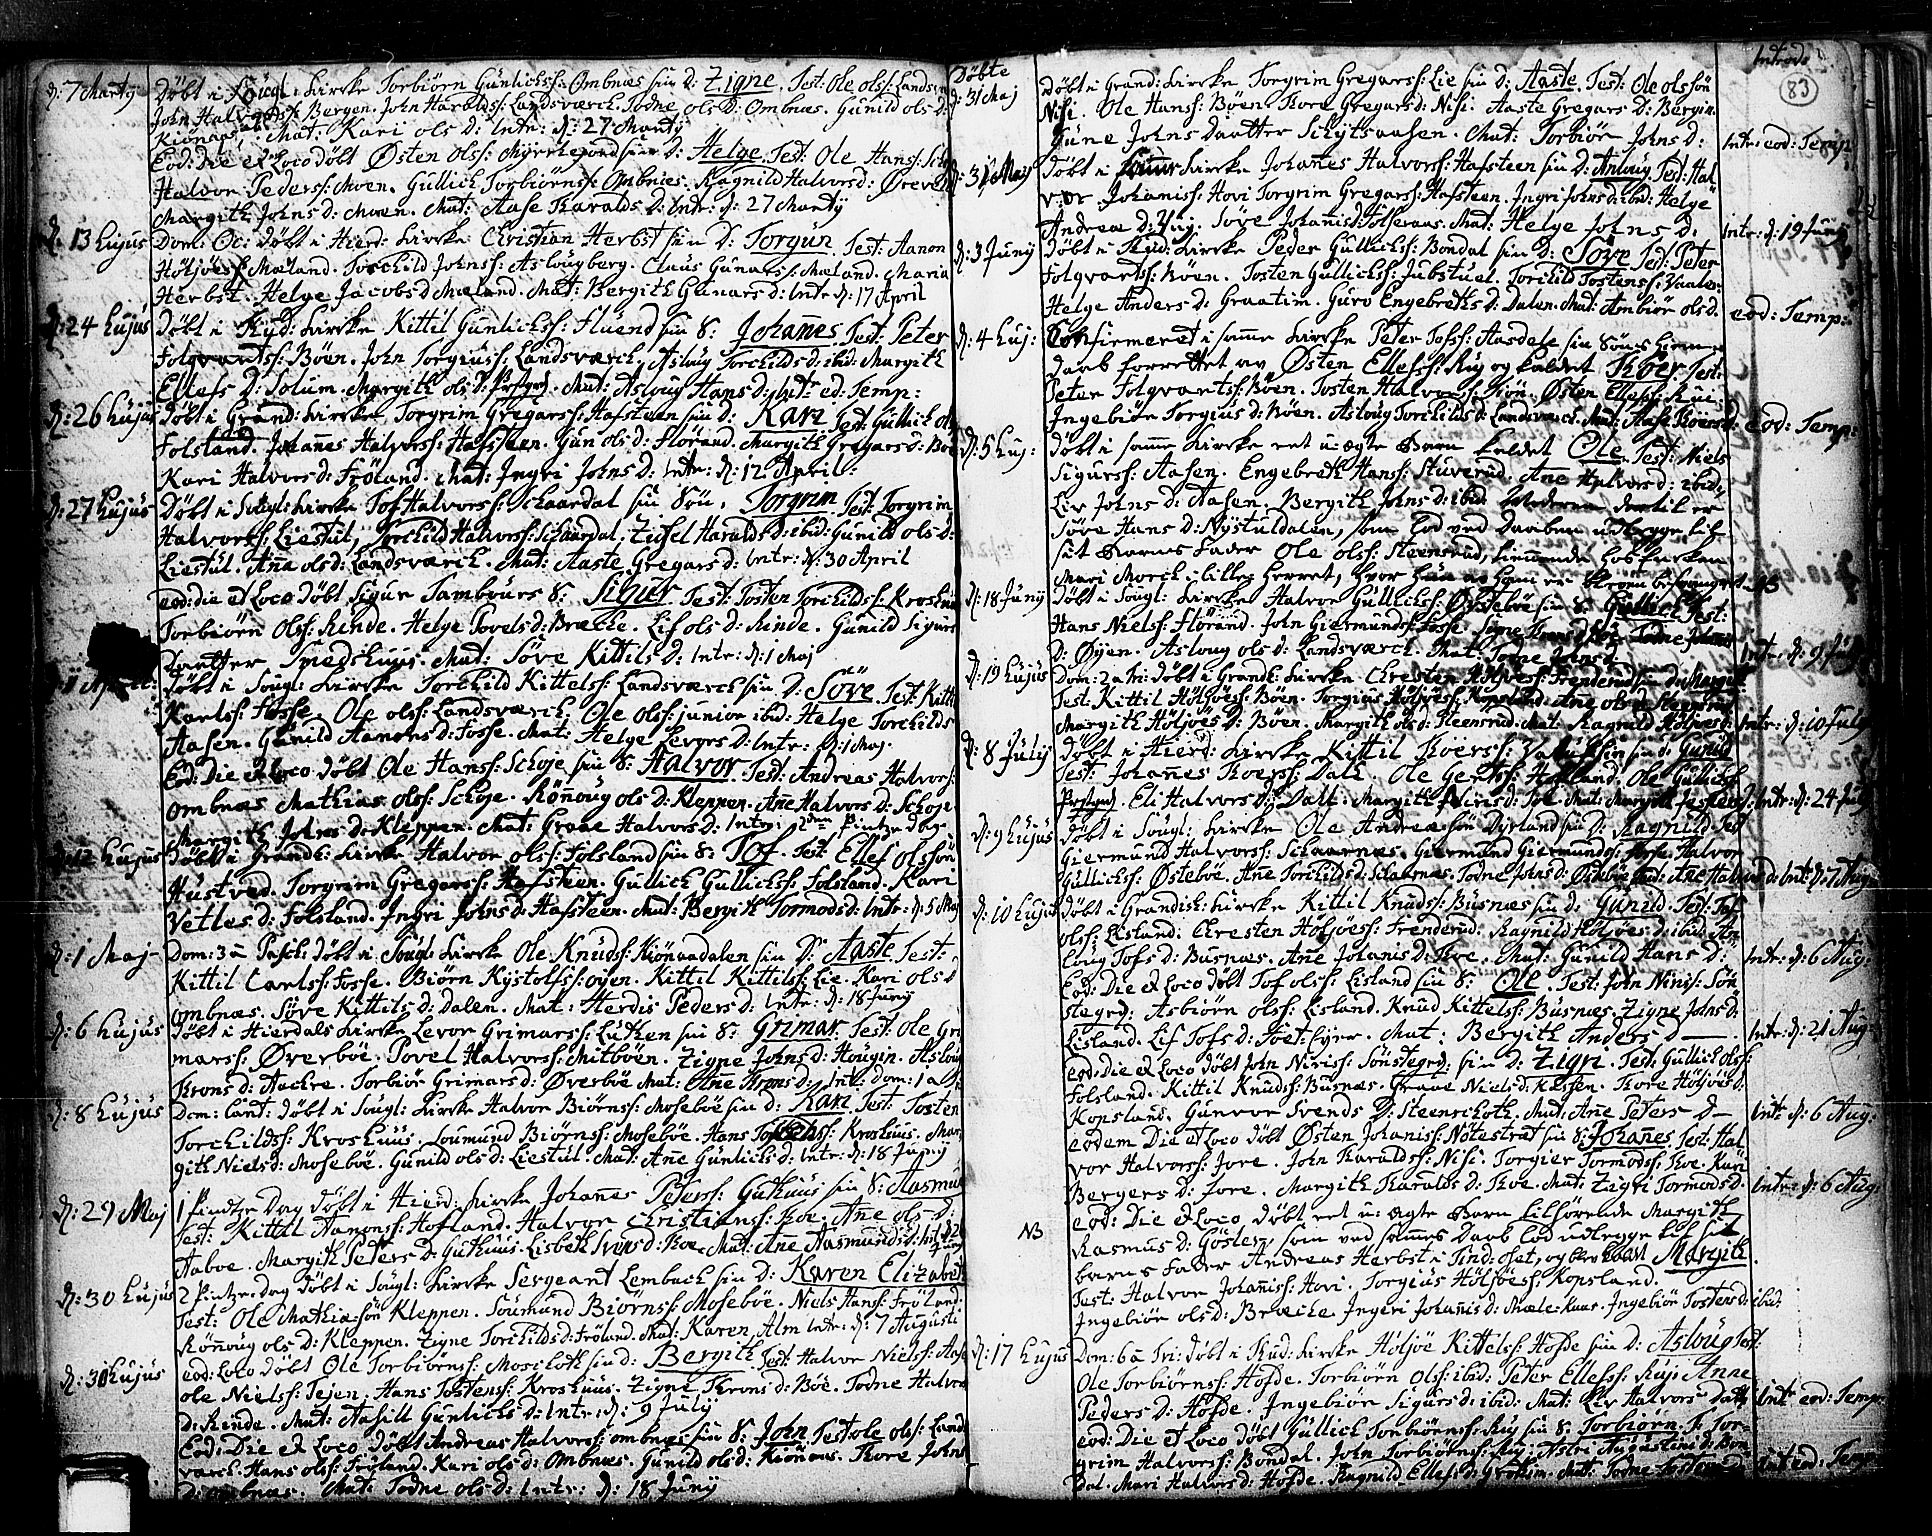 d: 7 Marty Döbt i Söugl: kirke Torbiörn Gunlichs: Ombnæs sin D: Zigne. Test: Ole Ols: Landsv
John Halvords: Bergen. John Haralds: Landsværck. Todne Ols D: Ombnæs. Gunild Ols D:
Kiönaas. Mat: Kari Ols D: Intr: d: 27 Marty
Eod: Die et Loco döbt Østen Ols: sin D: Helge. Test: Ole Hans:
Halvor Peders: Moen. Gullich Torbiörns: Ombnæs. Ragnild Halvorsd: Øreve
Margith Johns D: Moen. Mat: Aase Haralds D: Intr: d: 27 Marty
d: 13 hujus Dom: Oc: döbt i Hierd: kirke Christian Herbst sin D: Torgun. Test: Aanon
Höljöes: Mæland. Torchild Johns: Aslougberg. Claus Gunars: Mæland. Maria
Herbst. Helge Jacobs D Mæland. Mat: Bergith Gunars D: Intr d: 17 April
d: 24 hujus Döbt i Hyd: kirke Kittil Gunlichs: Fluend sin S: Johannes Test: Peter
Folqvarts: Böen. John Torgius: Landsværck. Asloug Torchilds D: ibid: Margith
Ellefs D: Solum. Margith Ols D: Mat: Asloug Hans D: Intr ed: Temp:
d: 26 hujus Döbt i Grand: kirke Torgrim Gregars: Hafsteen sin D: Kari Test: Gullich Ols
Folsland. Johannes Halvors: Hafsteen. Gun Ols D: Flörand. Margith Gregars D: Böe
Kari Halvors D: Fröland. Mat: Ingri Johns D: Intr: d: 12 April:
d: 27 hujus Döbt i Söugl: kirke Tof Halvors: Schaardal sin Sön, Torgrim Test: Torgrim
Halvors: Liestul, Torchild Halvors: Schaardal: Zissel Haralds D: ibid: Gunild Ols D:
Liestul. Ana Ols D: Landsværck. Mat: Aaste Gregars D: Intr: d: 30 April
eod: die et Loco döbt Sigur Tambours S: Sigur. Test: Tosten Torchilds: Kroshuus
Torbiörn Ols: Rinde. Helge Povels D: Bræche. Lif Ols D: Rinde. Gunild Sigurs
Daatter Smedshuus. Mat: Söve Kittils D: Intr: d: 1 Maj
April: Döbt i Söugl: kirke Torchild Kittels: Landsværck sin D: Söve. Test: Kittil
Karls: Fosse. Ole Ols: Landsværck. Ole Ols: junior ibid: Helge Torchilds
Aasen. Gunild Aamons D: Fosse. Mat: Helge Levors D: Intr: d: 1 Maj.
Eod: Die et Loco döbt Ole Hans: Schoje sin S: Halvor. Test: Andreas Halvors:
Ombnæs Mathias Ols: Schoje. Rönnoug Ols D: Kleppen. Ane Halvors D: Schoje
Margith Johns D: Kleppen. Mat: Graae Halvors D: Intr: 2den Pintze Dag
12 hujus Döbt i Grands: kirke Halvor Ols: Folsland sin S: Tof. Test: Ellef Olssön
Hustved. Torgrim Gregars: Hafsteen. Gullich Gullichs: Folsland. Kari
Vetles D: Folsland. Ingri Johns D: Hafsteen. Mat: Bergith Tormods D: Intr: d: 5 Maj
d: 1 Maj Dom: 3 a Pasch: döbt i Söugl: kirke Ole Knuds: Kiönaadalen sin D: Aaste Test:
Kittil Carls: Fosse. Biörn Kystolfs: Øyen. Kittil Kittils: Lie. Kari Ols D
Ombnæs. Söve Kittils D: Dalen. Mat: Herdis Peders D: Intr: d: 18 Juny
d: 6 hujus Döbt i Hierdals kirke Levor Grimars: Lutken sin S: Grimar. Test: Ole Gri
mars: Øverböe. Povel Halvors: Mitböen. Zigne Johns D: Hougin. Asloug
Trons D: Aachre. Torbiör Grimars D: Øverböe Mat: Ane Trons D: Intr: Dom: 1 a
d: 8 hujus Dom: Cant: döbt i Söugl: kirke Halvor Biörns: Moseböe sin D: Kari Test: Tosten
Torchilds: Kroshuus. Soumund Biörns: Moseböe. Hans Kroshuus. Mar
gith Niels D: Moseböe. Gunild Ols D: Liestul. Mat: Ane Gunlichs D: Intr: d: 18 Juny
d: 29 Maj 1 Pintze Dag döbt i Hierd: kirke Johannes Peters: Guthuus sin S: Aasmun
Test: Kittil Aamons: Hofland. Halvor Christians: Boe. Ane Ols D:
Aaboe. Margith Peters D: Guthuus. Lisbeth Ivers D: Boe. Mat: Ane Aasmunds D:
d: 30 hujus 2 Pintze Dag döbt i Sougl: kirke Sergeant Lembach sin D: Karen Elizabet
Test: Ole Mathiæsön Kleppen. Soumund Biörns: Moseböe. Niels Hans: Fröland
Rönnoug Ols D: Kleppen. Zigne Torchilds D: Fröland. Mat: Karen Alm Intr: d: 7 Augusti
d: 31 hujus eod: Loco döbt Ole Torbiörns: Moschoth sin D: Bergith Test: Halvor Niels:
Ole Niels: Tejen. Hans Tostens: Kroshuus. Zigne Trons D: Böe. Todne Halvor
D: Rinde. Mat: Aasill Gunlichs D: Intr: d: 9 July
Eod: Die et Loco döbt Andreas Halvors: Ombnæs sin S: John Test Ole Ols: Lands
værck. Hans Ols: Fröland. Kari Ols D: Ombnæs. Gunild Ols D: Kiönaas. Thore Johns
D: Ombnæs. Mat: Todne Ols D: Intr: d: 18 Juny
Döbte
Introd:
83
d: 31 Maj Döbt i Grand: kirke Torgrim Gregars: Lie sin D: Aaste. Test: Ole Olssön
Nisi. Ole Hans: Böen. Thore Gregars D: Nisi. Aaste Gregars D: Bergin.
Gune Johns Daatter Mat: Torbiör Johns D: Intr: eod: Temp
d: 31 Maj Döbt i samme kirke Johannes Halvors: Hafsteen sin D: Anloug Test: Hal
vor Johannis: Hovi Torgrim Gregars: Hafsteen. Ingri Johns D: ibid: Helge
Andreæ D: Söve Johanis D: Mat: Helge Johns D. Intr: d: 19 Juny
d: 3 Juny Döbt i Hyd: kirke Peder Gullichs: Bondal sin D: Söve Test: Peter
Folqvarts: Böen. Tosten Gullichs: Jubstuel. Torchild Tostens: Vaale:
Helge Anders D: Graatim. Guro Engebreths D: Dalen. Mat: Ambiör Ols D. eod: Temp:
d: 4 huj: Confirmeret i samme kirke Peter Tofs: Aasdele sin Söns hjemme
daab forrettet av Østen Ellefs: Ruj og kaldet Thoer. Test:
Peter Folqvarts: Böen. Tosten Halvors: Østen Ellefs: Rui.
Ingebiör Torgius D: Böen. Asloug Torchilds D: Landsværck. Mat: Aase Thoers D. eod: Temp:
d: 5 huj: Döbt i samme kirke et u-ægte Barn kaldet Ole. Test: Niels
Sigurs: Aasen. Engebreth Hans: Stuverud. Ane Halvors D: ibid:
Liv Johns D: Aasen. Bergith Johns D: ibid Moderen dertil er
Söve Hans D: Nystuldalen, som lod ved Daaben udlegge til
sit Barns Fader Ole Ols: Steensrud, tienende hos Encken
Mari Morch i Lilleherret, hvor hun af ham er bleven besvangret NB
d: 18 Juny Döbt i Sougl: kirke Halvor Gullichs: Østeböe sin S: Gullich Test:
Hans Niels: Flörand. John Giermunds: Fosse.
D: Øyen. Asloug Ols D: Landsværck. Mat: Todne Johns D Intr: d: 9 July
d: 19 hujus Dom: 2 a Tr: döbt i Grands: kirke Christen Höljöes: Frenderud sin D: Margit
Test: Kittil Höljöes: Böen. Torgius Höljöes: Kopsland. Ane Ols D: Steensrud
Margith Höljöes D: Böen. Margith Ols D: Steensrud. Mat: Ragnild Höljöes D: Intr: d: 10 July
d: 8 July Döbt i Hierd: kirke Kittil Thoers: sin D: Gunild
Test: Johannes Thoers: Dahl. Ole Gerts: Hofland. Ole Gullichs:
Eli Halvors D: Dall. Margith Mat: Margith Intr: d: 24 July
d: 9 hujus Döbt i Sougl: kirke Ole Andreæsön Dyrland sin D: Ragnild Test
Giermund Halvors: Schaarnæs. Giermund Giermunds: Fosse. Halvor
Gullichs: Østeböe. Ane Torchilds D: Schaarnæs. Todne Johns D: Østeböe Mat: Ane Halvors D: Intr: d: 7 Aug
d: 10 hujus Döbt i Grandish: kirke Kittil Knuds: Busnæs sin D: Gunild Test: Tof
Ols: Lisland: Christen Höljöes: Frenderud. Ragnild Höljöes D: ibid: An
loug Tofs D: Busnæs. Ane Johanis D: Thoe. Mat: Gunild Hans D: Intr: d: 6 Aug:
Eod: Die et Loco döbt Tof Ols: Lisland sin S: Ole. Test: John Niris: Sön
stegrd: Asbiörn Ols: Lisland. Knud Kittels: Busnæs. Zigne Johns D:
Lisland. Lif Tofs D: Mat: Bergith Anders D — Intr: d: 21 Aug
eod: Die et Loco döbt John Niris: Sönstegrd: sin D: Zigri. Test: Gullich Ols:
Folsland. Kittil Knuds: Busnæs. Graae Niels D: Thore Höljöes D:
Kopsland. Gunvor Svends D: Steenschoth. Mat: Ane Peters D— Intr: d: 6 Aug:
eodem Die et Loco döbt Østen Johanis: Nötestræt sin S: Johannes Test: Hal
vor Halvors: Jore. John Haralds: Nisi. Torgier Tormods: Thoe. Kari
Bergers D: Jore. Margith Haralds D: Thoe. Mat: Zigri Tormods D: Intr: d: 6 Aug:
NB eod: Die et Loco döbt et u-ægte Barn tilhörende Margith
Rasmus D: som ved sammes Daab lod udlegge til sit
barns Fader Andreas Herbst i Tindoset, og blev kaldet Margith
Test: Halvor Johannis: Hovi. Torgius Höljöes: Kopsland.
Ingebiör Ols D: Bræche. Ingeri Johanis D: Ingebiör Tostens D: ibid:
d: 17 hujus Dom: 6 a Tri: döbt i Hyd: kirke Höljöe Kittils: Hofde sin D: Asloug Test:
Ole Torbiörns: Hofde. Torbiörn Ols: ibid: Peter Ellefs: Ruj. Anne
Peders D: Hofde. Ingebiör Sigurs D: ibid: Mat: Liv Halvors Datt: Intr eod: Temp:
eod: Die et Loco döbt Gullich Torbiörns: Ruj sin S: Torbiörn. T: Tor-
grim Halvors: Bondal. John Torbiörns: Ruj. Astri Augustini D: Bon
dal. Mari Halvors D: Hofde. Ragnild Ellefs D: Grötem. Mat: Todne Tostens D Intr eod: Temp: